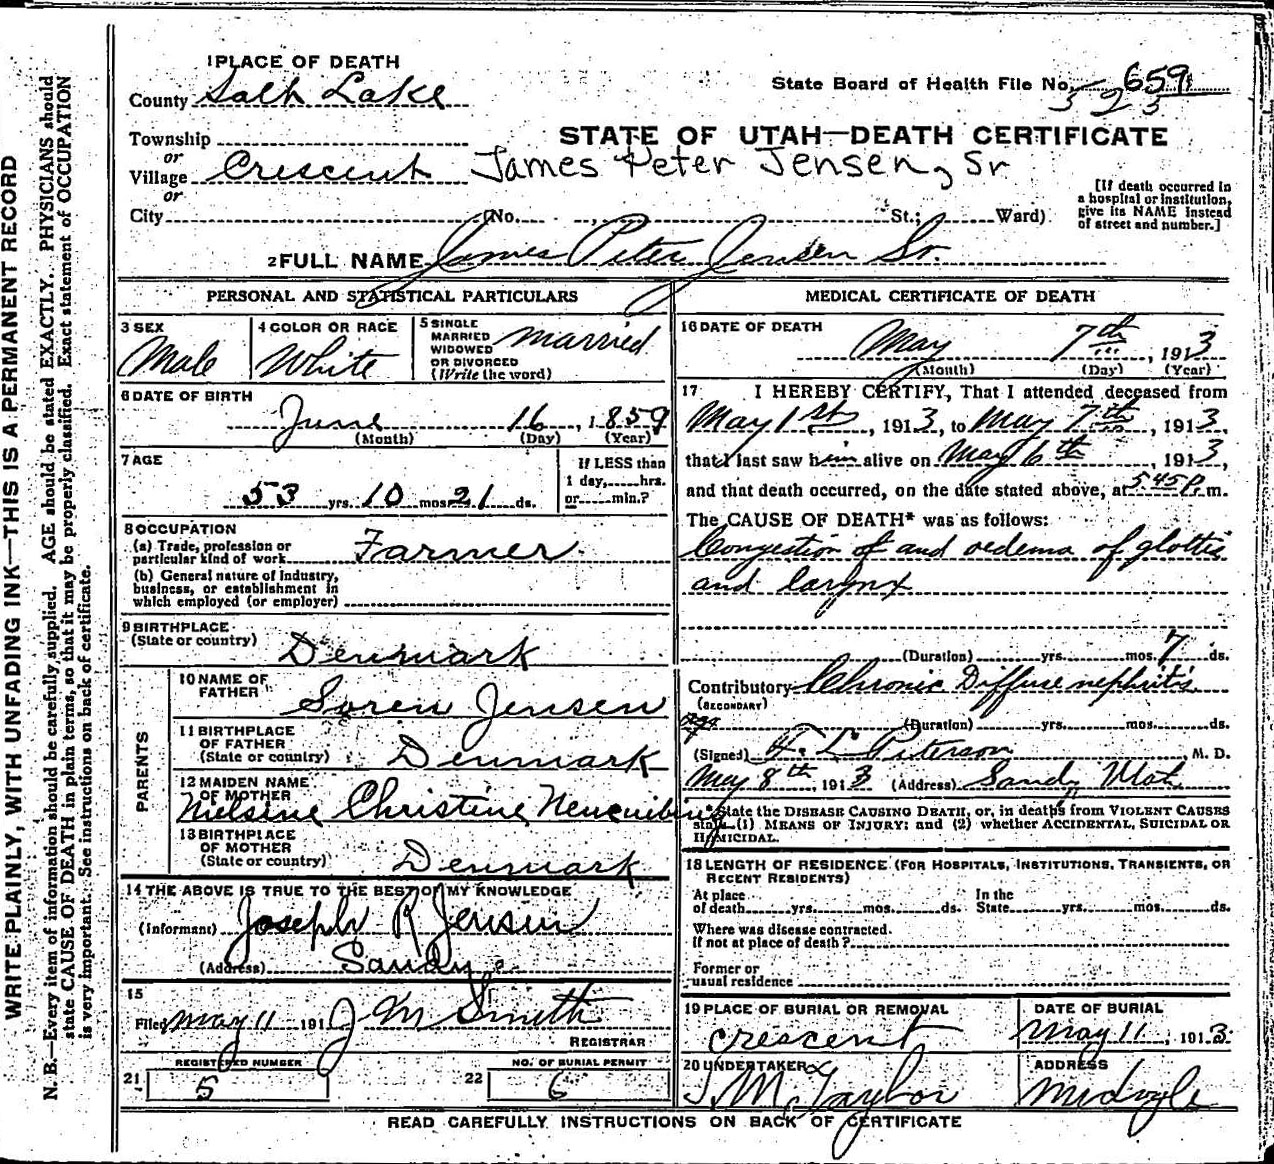 WRITE PLAINLY, WITH UNFADING INK—THIS IS A PERMANENT RECORD
N. B.—Every item of information should be carefully supplied. AGE should be stated EXACTLY. PHYSICIANS should
state CAUSE OF DEATH in plain terms, so that it may be properly classified. Exact statement of OCCUPATION
is very important. See instructions on back of certificate.
1 PLACE OF DEATH
County Salt Lake
State Board of Health File No. 659
323
Township
STATE OF UTAH—DEATH CERTIFICATE
or
Village Crescent James Peter Jensen, Sr
or
City (No. , St.; Ward)
[If death occurred in
a hospital or institution,
give its NAME instead
of street and number.]
2 FULL NAME James Peter Jensen Sr.
PERSONAL AND STATISTICAL PARTICULARS
3 SEX
Male
4 COLOR OR RACE
White
5 SINGLE
MARRIED
WIDOWED
OR DIVORCED
(Write the word)
married
6 DATE OF BIRTH
June 16, 1859
(Month) (Day) (Year)
7 AGE
53 yrs. 10 mos. 21 ds.
If LESS than
1 day, hrs.
or min.?
8 OCCUPATION
(a) Trade, profession or
particular kind of work Farmer
(b) General nature of industry,
business, or establishment in
which employed (or employer)
9 BIRTHPLACE
(State or country)
Denmark
PARENTS
10 NAME OF
FATHER
Soren Jensen
11 BIRTHPLACE
OF FATHER
(State or country)
Denmark
12 MAIDEN NAME
OF MOTHER
Nielsine Christine
13 BIRTHPLACE
OF MOTHER
(State or country)
Denmark
14 THE ABOVE IS TRUE TO THE BEST OF MY KNOWLEDGE
(Informant) Joseph R Jensen
(Address) Sandy
15
Filed May 11 191 J M Smith
REGISTRAR
REGISTERED NUMBER
21 5
NO. OF BURIAL PERMIT
22 6
MEDICAL CERTIFICATE OF DEATH
16 DATE OF DEATH
May 7th, 1913
(Month) (Day) (Year)
17 I HEREBY CERTIFY, That I attended deceased from
May 1st, 1913, to May 7th, 1913,
that I last saw him alive on May 6th, 1913,
and that death occurred, on the date stated above, at 5 45 P. m.
The CAUSE OF DEATH* was as follows:
Congestion of and oedema of glottis
and larynx
(Duration) yrs. mos. 7 ds.
Contributory Chronic Diffuse nephritis
(SECONDARY)
(Duration) yrs. mos. ds.
(Signed) F. L. Peterson M. D.
May 8th 1913 (Address) Sandy, Utah
*State the DISEASE CAUSING DEATH, or, in deaths from VIOLENT CAUSES
state (1) MEANS OF INJURY; and (2) whether ACCIDENTAL, SUICIDAL OR
HOMICIDAL.
18 LENGTH OF RESIDENCE (FOR HOSPITALS, INSTITUTIONS, TRANSIENTS, OR
RECENT RESIDENTS)
At place
of death yrs. mos. ds.
In the
State yrs. mos. ds.
Where was disease contracted.
if not at place of death?
Former or
usual residence
19 PLACE OF BURIAL OR REMOVAL
Crescent
DATE OF BURIAL
May 11, 1913
20 UNDERTAKER
J. M. Taylor
ADDRESS
Midvale
READ CAREFULLY INSTRUCTIONS ON BACK OF CERTIFICATE